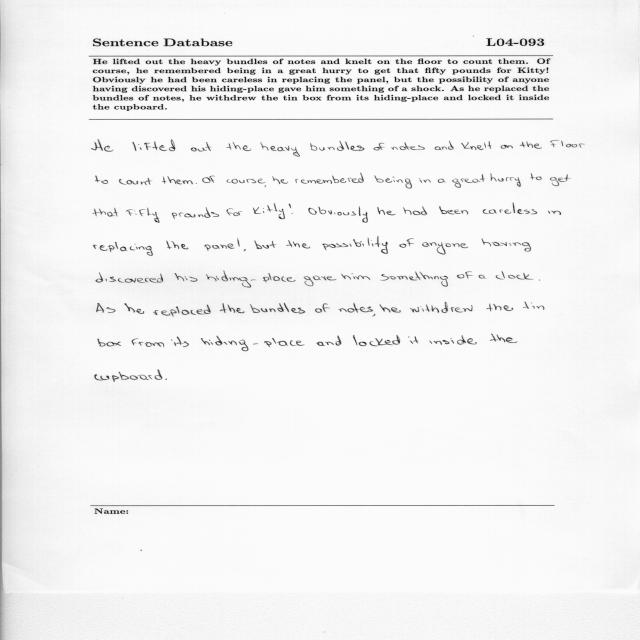 Sentence Database L04-093
He lifted out the heavy bundles of notes and knelt on the floor to count them. Of
course, he remembered being in a great hurry to get that fifty pounds for Kitty!
Obviously he had been careless in replacing the panel, but the possibility of anyone
having discovered his hiding-place gave him something of a shock. As he replaced the
bundles of notes, he withdrew the tin box from its hiding-place and locked it inside
the cupboard.
He lifted out the heavy bundles of notes and knelt on the floor
to count them. Of course, he remembered being in a great hurry to get
that fifly prounds for Kitly! Obviously he had been careless in
replacing the panel, but the possibility of anyone having
discovered his hiding-place gave him something of a clock.
As he replaced the bundles of notes, he withdrew the tin
box from its hiding-place and locked it inside the
cupboard.
Name: